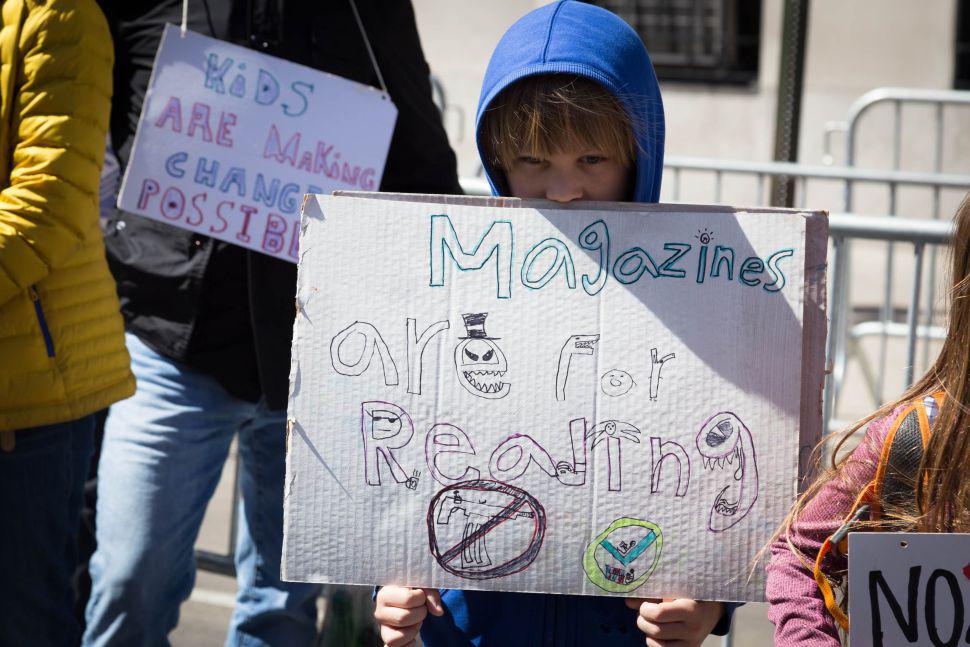 KiDS
ARE MaKiNG
CHANGE
POSSIBLE
Magazines
are for
Reading
NO